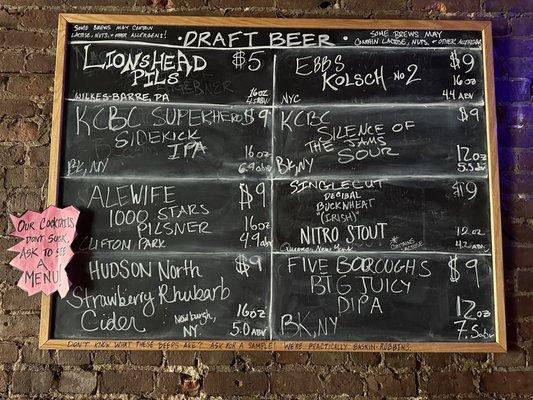 SOME BREWS MAY CONTAIN
LACTOSE, NUTS, + OTHER ALLERGENS!
· DRAFT BEER ·
SOME BREWS MAY
CONTAIN LACTOSE, NUTS, + OTHER ALLERGENS
LIONSHEAD $5
PILS
16oz
4.5 ABV
WILKES-BARRE, PA
EBBS $9
KOLSCH NO 2
16oz
NYC 4.4 ABV
KCBC SUPERHERO $9
SIDEKICK
IPA
16oz
BK, NY 6.9 ABV
KCBC $9
SILENCE OF
THE JAMS
SOUR
12oz
BK, NY 5.5 ABV
ALEWIFE $9
1000 STARS
PILSNER
16oz
CLIFTON PARK 4.9 ABV
SINGLECUT $9
DECIBAL
BUCKWHEAT
"(IRISH)"
NITRO STOUT
*CONTAINS LACTOSE
12oz
Queens, New York 4.2 ABV
HUDSON NORTH $9
Strawberry Rhubarb
Cider
Newburgh,
NY
16oz
5.0 ABV
FIVE BOROUGHS $9
BIG JUICY
DIPA
12oz
BK, NY 7.5 ABV
OUR COCKTAILS
DON'T SUCK,
ASK TO SEE
A
MENU!
DON'T KNOW WHAT THESE BEERS ARE? ASK FOR A SAMPLE! WE'RE PRACTICALLY BASKIN-ROBBINS.